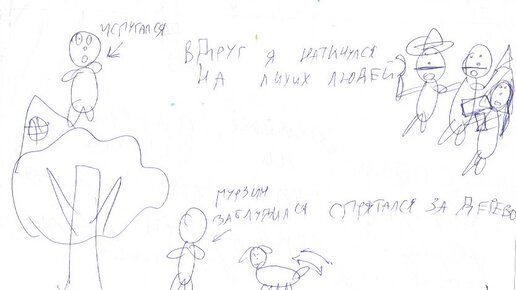 ИСПУГАЛСЯ
ВДРУГ Я НАТКНУЛСЯ
НА ЛИХИХ ЛЮДЕЙ
МУРЗИН
ЗАБЛУДИЛСЯ СПРЯТАЛСЯ ЗА ДЕРЕВО